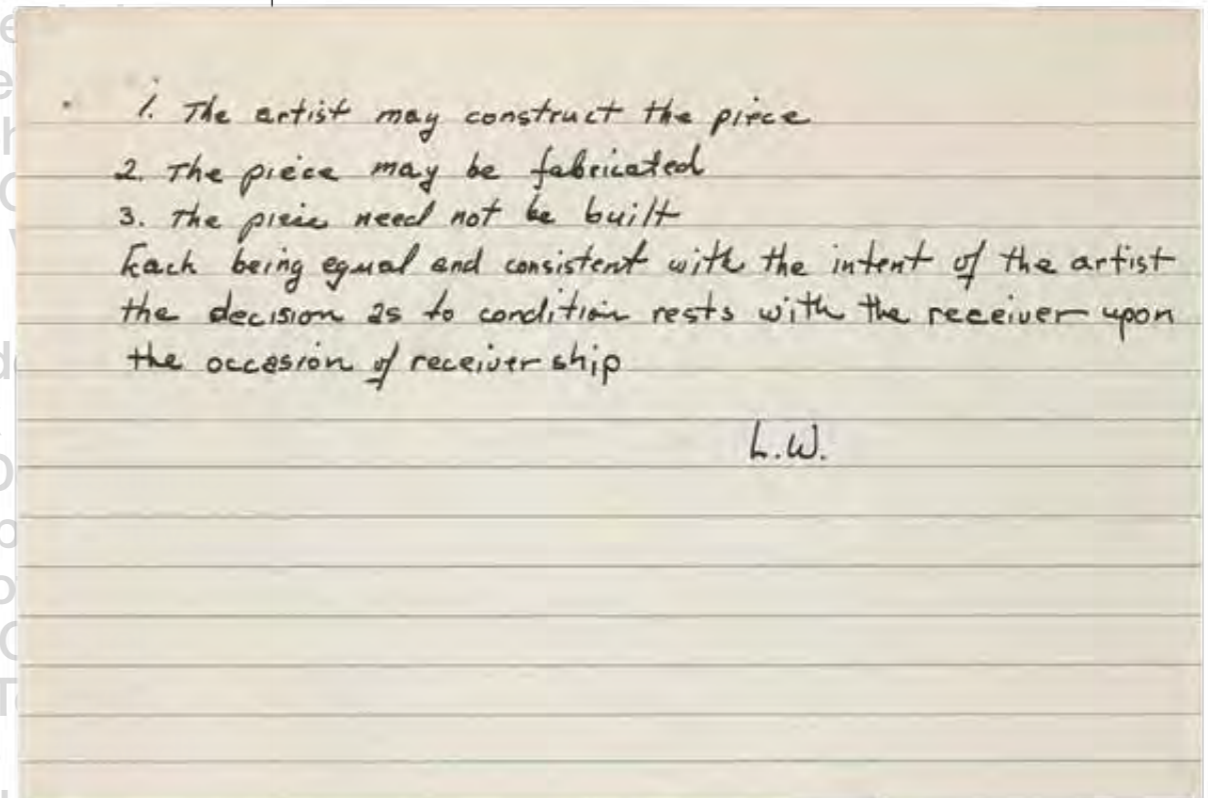 1. The artist may construct the piece
2. The piece may be fabricated
3. The piece need not be built
Each being equal and consistent with the intent of the artist
the decision as to condition rests with the receiver upon
the occasion of receiver ship
L.W.